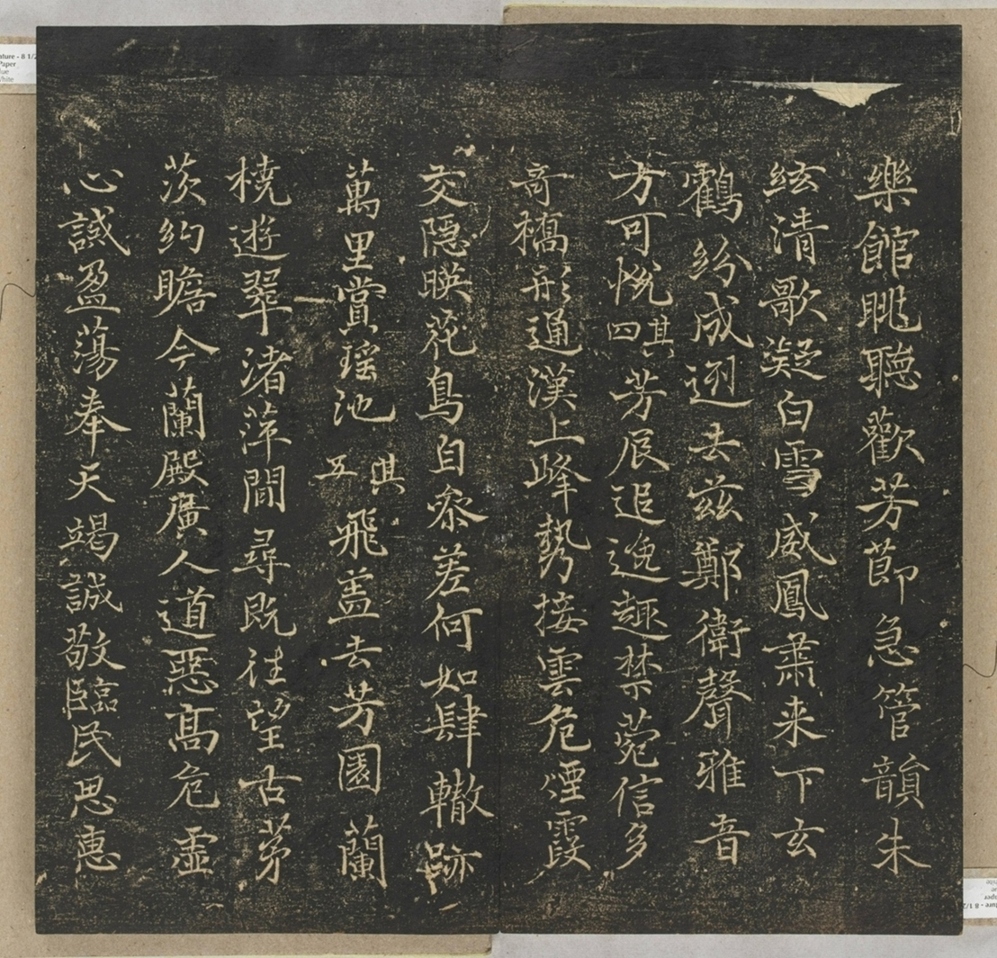 樂館眺聽歡芳節急管韻朱
絃清歌凝白雪威鳳肅来下玄
鶴紛成迾去茲鄭衛聲雅音
方可悅其四芳辰追逸趣禁菀信多
奇橋形通漢上峰勢接雲危煙霞
交隱暎花鳥自叅差何如肆轍跡
萬里賞瑤池其五飛盖去芳園蘭
橈遊翠渚萍間尋既往望古茅
茨約瞻今蘭殿廣人道惡高危虛
心誡盈蕩奉天竭誠敬臨民思惠